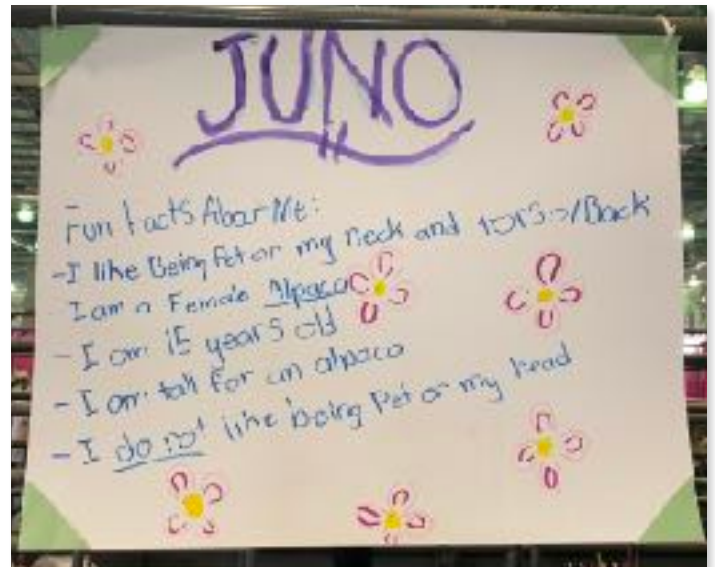 JUNO
Fun facts About Me:
-I like Being Pet on my neck and torso/Back
I am a Female Alpaca
- I am 15 years old
- I am tall for an alpaca
- I do not like being Pet on my head